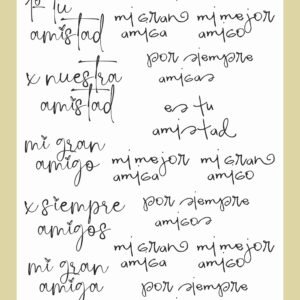 tu
amistad
mi gran
amiga
mi mejor
amigo
por siempre
amigas
x nuestra
amistad
es tu
amistad
mi gran
amigo
mi mejor
amiga
mi gran
amigo
x siempre
amigos
por siempre
amigos
por siempre
mi gran
amiga
mi mejor
amigo
mi gran
amiga
por siempre